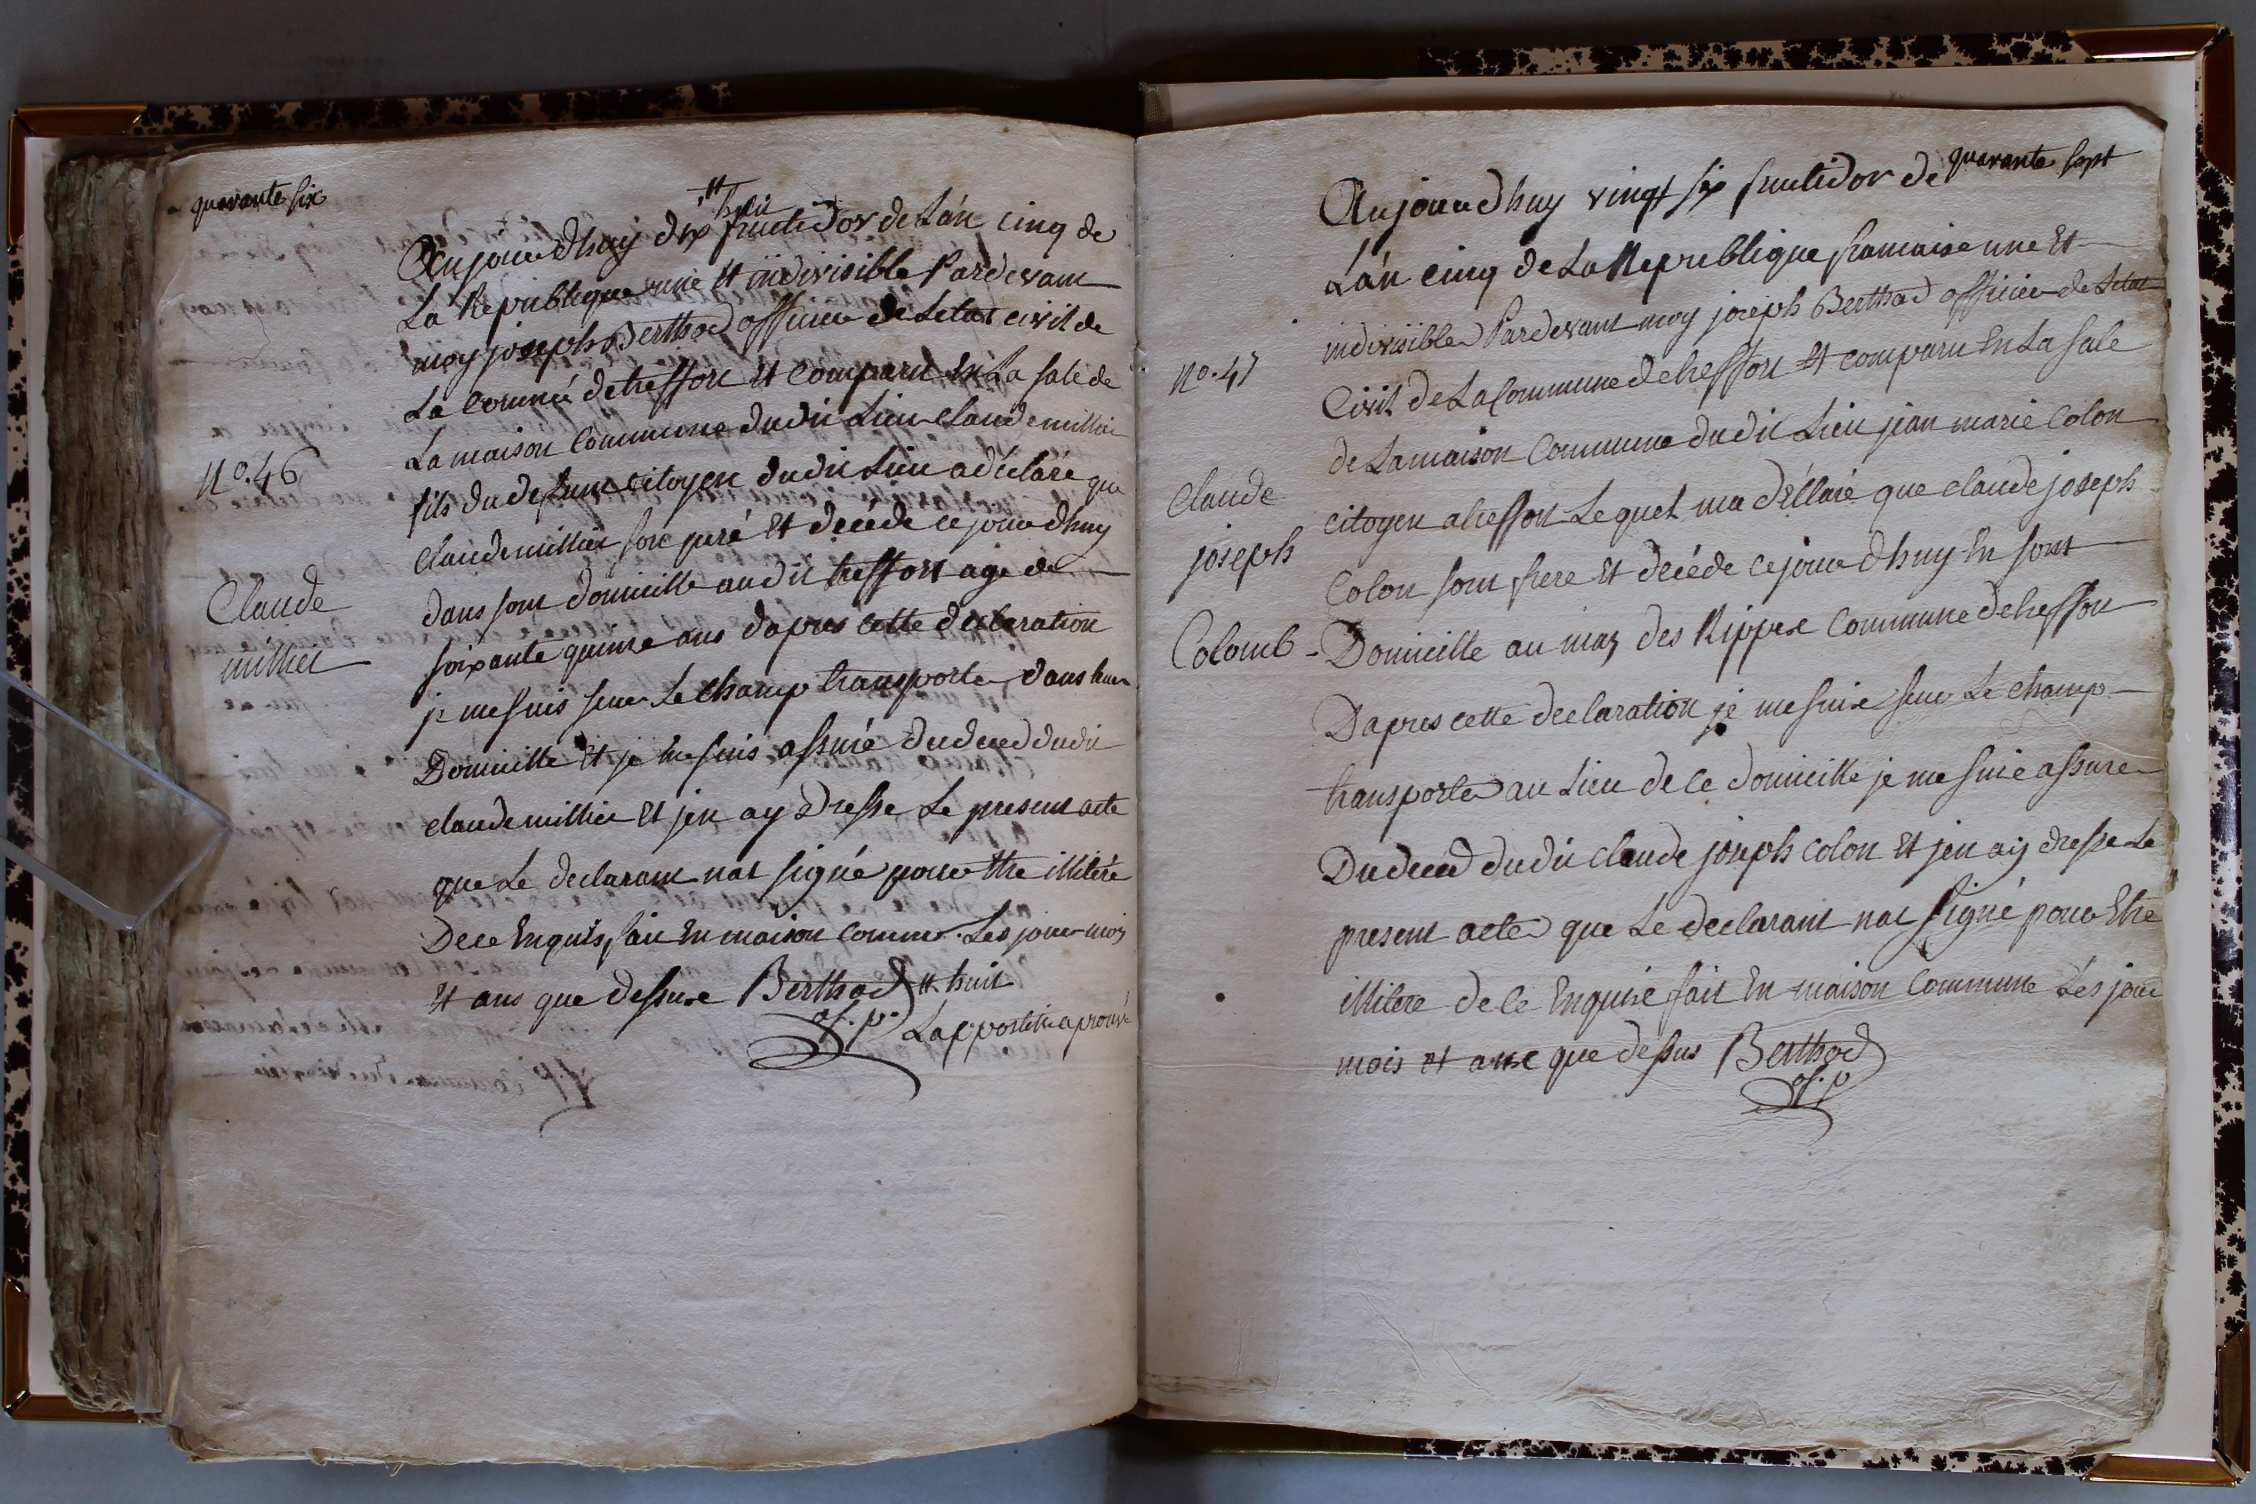 quarante six
# huit
Aujourdhuy dix fructidor de Lán cinq de
La Republique une Et indivisible Pardevant
moy joseph Berthod officier de Letat civil de
La commé de tresfort Et comparu En La sale de
La maison Commune dudit Lieu Claude millier
fils du defunt citoyen dudit Lieu a déclaré que
Claude millier son peré Et decéde ce jourdhuy
dans sont domicille audit tresfort age de
soixante quinze ans dapres cette declaration
je me suis seur Le champ transporter dans leur
Domicille Et je me suis assuré du deced dudit
claude millier Et jen ay dresse Le present acte
que Le declarant nat signé pour Etre illiteré
De ce Enquis fait En maison comme. Les jour mois
Et ans que dessuse Berthod # huit
of. p. Lappostile aprouvé
No. 46
Claude
millier
quarante sept
Aujourdhuy vingt six fructidor de
Lán cinq de La Republique framaise une Et
indivisible Pardevant moy joseph Berthod officier de Letat
Civil de La Commune de tresfort Et comparu En La sale
de La maison Commune dudit Lieu jean marie Colon
citoyen a tresfort Lequel ma déllaré que claude joseph
Colon sont frere Et decéde ce jourdhuy En sont
Domicille au maz des Rippese Commune de tresfort
Dapres cette declaration je me suise seur Le champ
transporter au Lieu de ce domicille je me suise assurer
Du deced dudit claude joseph colon Et jen ay dresse Le
present acte que Le declarant nat signé pour Etre
illitere de ce Enquise fait En maison Commune Lés jour
mois Et anse que dessus Berthod
of. p
No. 47
Claude
joseph
Colomb